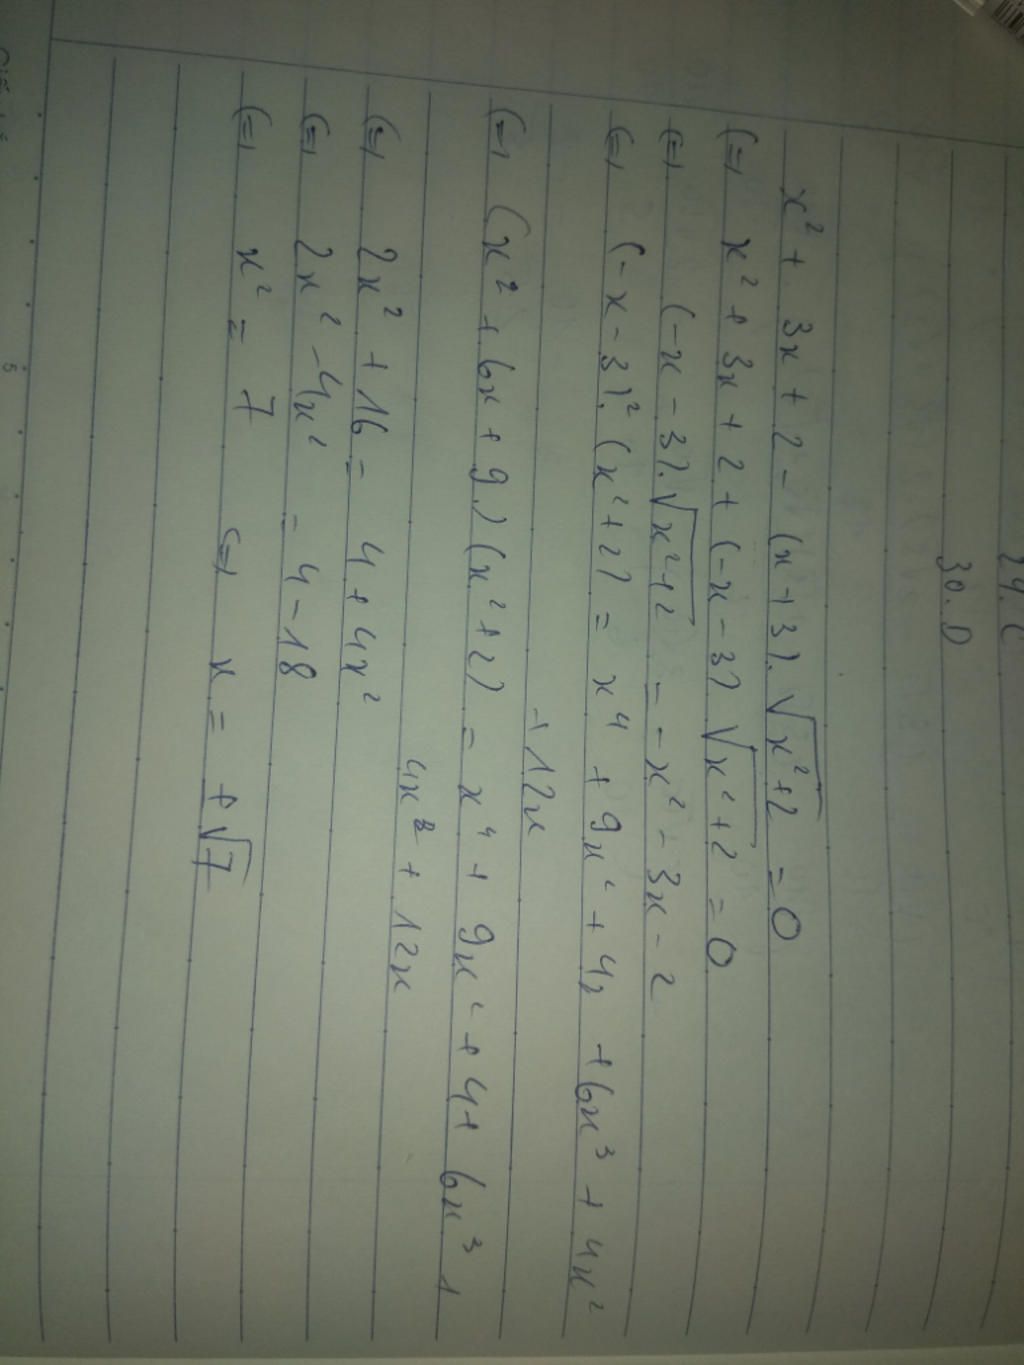 29. C
30. D
x² + 3x + 2 - (x + 3). √x²+2 = 0
(=) x² + 3x + 2 + (-x - 3) √x²+2 = 0
(=) (-x - 3). √x²+2 = -x² - 3x - 2
(=) (-x - 3)². (x²+2) = x⁴ + 9x² + 4 + 6x³ + 4x²
+ 12x
(=) (x² + 6x + 9) (x²+2) = x⁴ + 9x² + 4 + 6x³ +
4x² + 12x
(=) 2x² + 16 = 4 + 4x²
(=) 2x² - 4x² = 4 - 18
(=) x² = 7 (=) x = ±√7
5